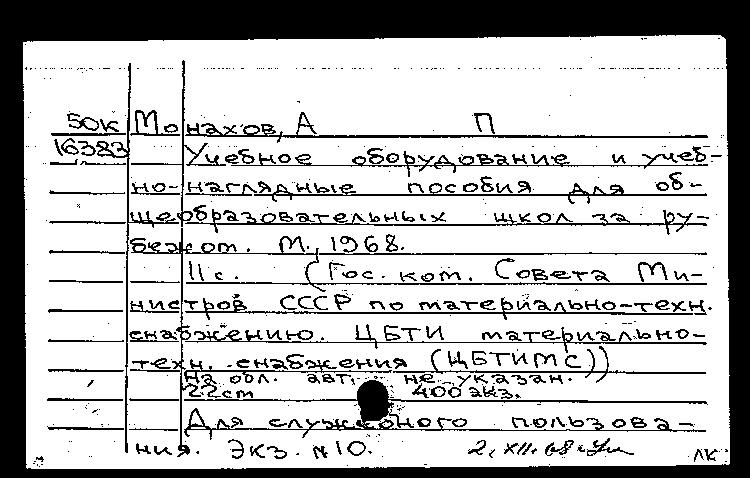 50к Монахов, А П
16383 Учебное оборудование и учеб-
но-наглядные пособия для об-
щеобразовательных школ за ру-
бежом. М., 1968.
11 с. (Гос. ком. Совета Ми-
нистров СССР по материально-техн.
снабжению. ЦБТИ материально-
техн. снабжения (ЦБТИМС))
На обл. авт. не указан.
22cm 400 экз.
Для служебного пользова-
ния. Экз. №10. 2.XII.68.
ЛК